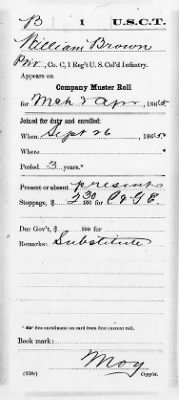 B 1 U.S.C.T.
William Brown
Priv., Co. C, 1 Reg't U. S. Col'd Infantry.
Appears on
Company Muster Roll
for Mch & Apr, 1865.
Joined for duty and enrolled:
When Sept 26, 1865
Where
Period 3 years.*
Present or absent present
Stoppage, $ 2 30/100 for C & G E.
Due Gov't, $ /100 for
Remarks: Substitute
* See enrollment on card from first current roll.
Book mark:
May
(858c) Copyist.